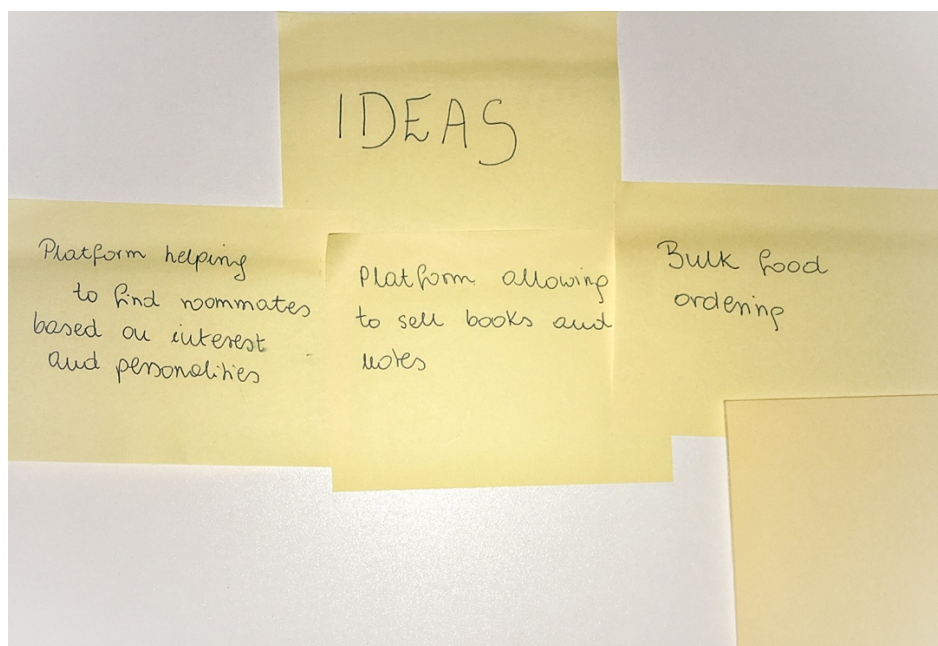 IDEAS
Platform helping
to find roommates
based on interest
and personalities
Platform allowing
to sell books and
notes
Bulk food
ordering